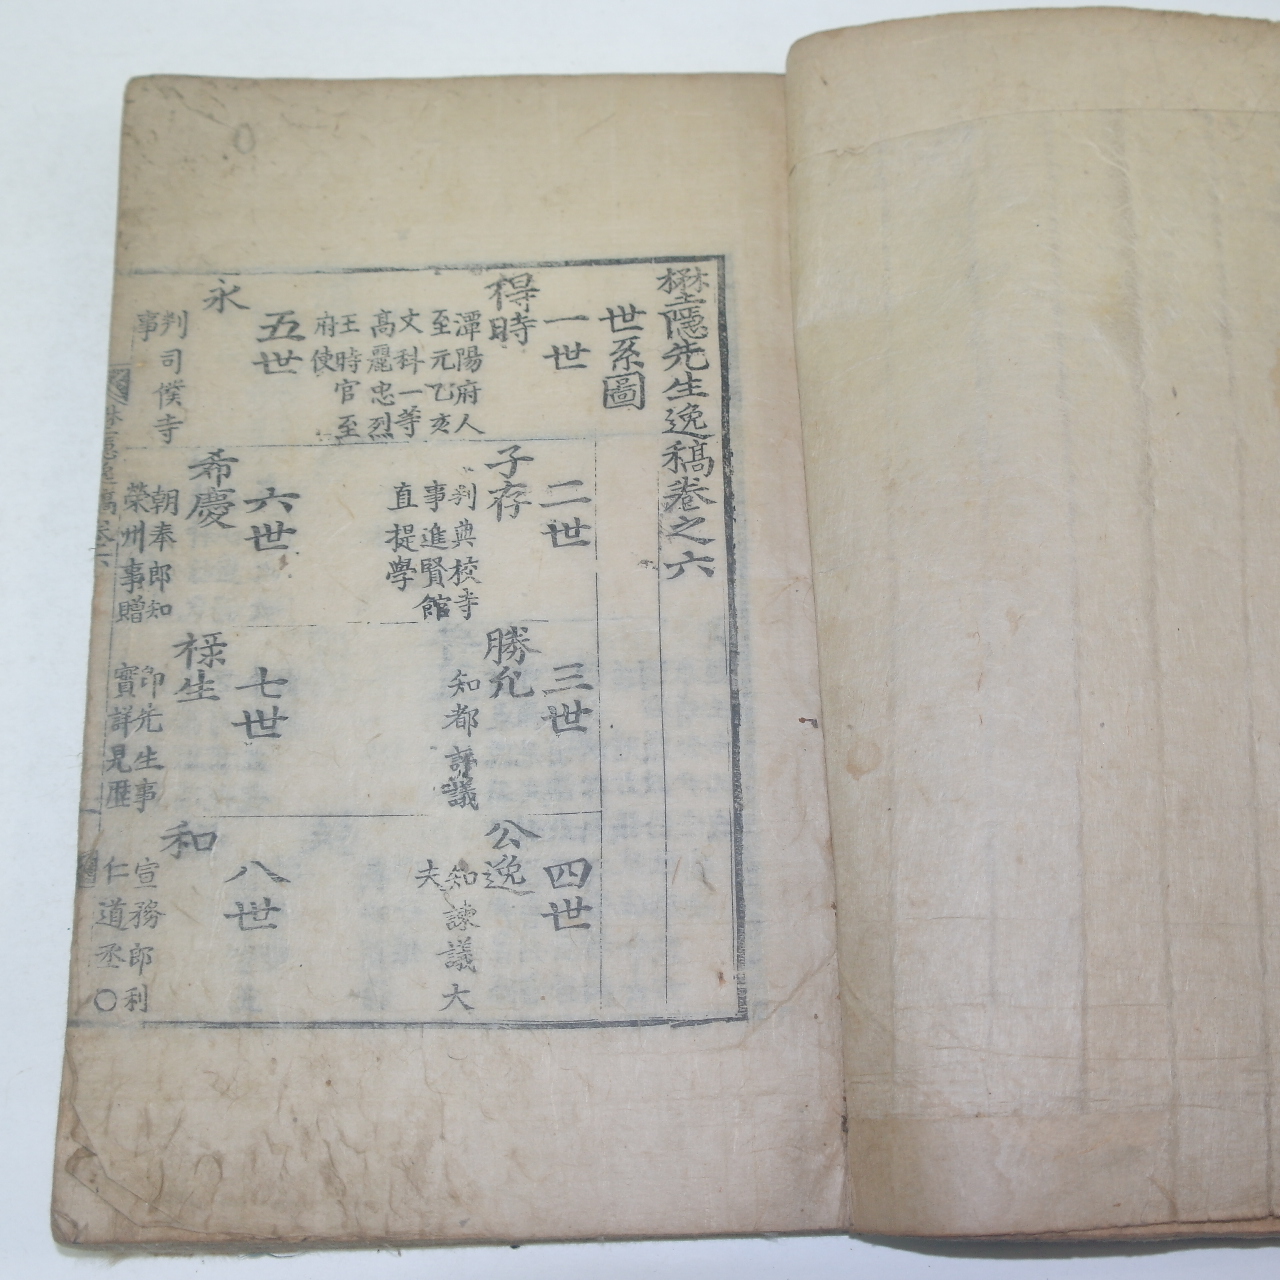 壄隱先生逸稿卷之六
世系圖
一世
得時
潭陽府人
至元乙亥
文科一等
高麗忠烈
王時官至
府使
二世
子存
判典校寺
事進賢館
直提學
三世
勝允
知都評議
四世
公逸
知諫議大
夫
五世
永
判司僕寺
事
六世
希慶
朝奉郎知
榮州事贈
七世
祿生
卽先生事
實詳見歷
八世
和
宣務郎利
仁道丞〇
壄隱逸稿卷六